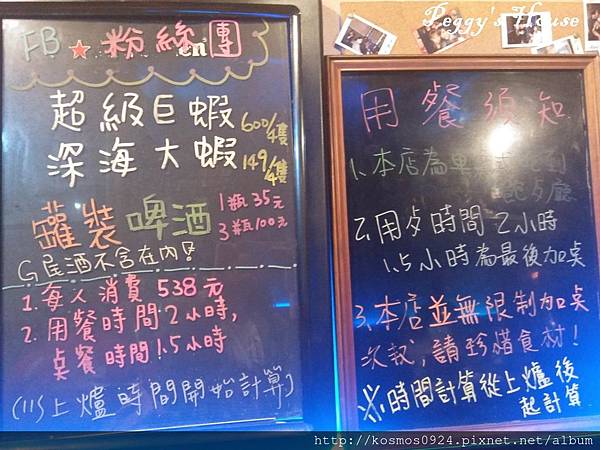 FB★粉絲團
超級巨蝦 600/4隻
深海大蝦 149/4隻
罐裝啤酒 1瓶35元
3瓶100元
(民酒不含在內)
1. 每人消費 538元
2. 用餐時間2小時,
桌餐時間1.5小時
(以上爐時間開始計算)
Peggy's House
用餐須知
1、本店為單
2、用歺時間2小時
1.5小時為最後加桌
3、本店並無限制加桌
次數,請珍惜食材!
※時間計算從上爐後
起計算
http://kosmos0924.pixnet.net/album